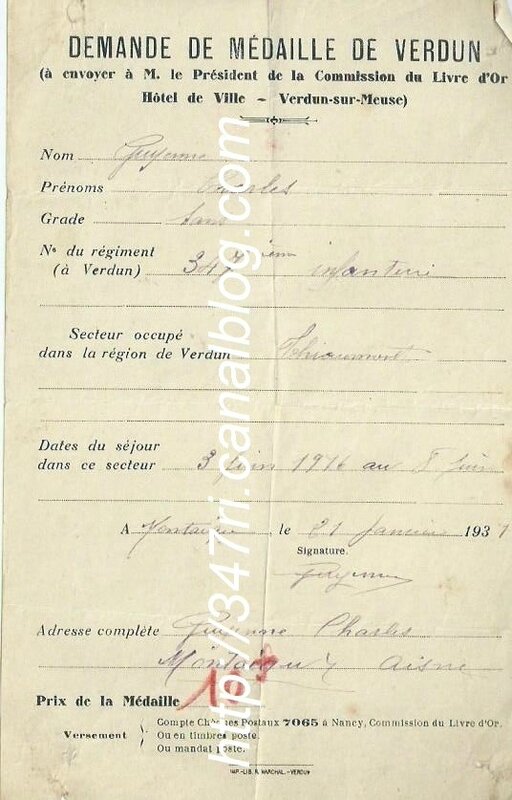 DEMANDE DE MÉDAILLE DE VERDUN
(à envoyer à M. le Président de la Commission du Livre d'Or
Hôtel de Ville – Verdun-sur-Meuse)
Nom Guyenne
Prénoms Charles
Grade
Nº du régiment
(à Verdun) 347 ième infanterie
Secteur occupé
dans la région de Verdun Thiaumont
Dates du séjour
dans ce secteur 3 juin 1916 au 8 juin
A , le 21 Janvier 1937
Signature.
Guyenne
Adresse complète Guyenne Charles
Aisne
Prix de la Médaille
Versement
Compte Chèques Postaux 7065 à Nancy, Commission du Livre d'Or.
Ou en timbres poste.
Ou mandat poste.
IMP.-LIB. R. MARCHAL. -VERDUN
http://347ri.canalblog.com